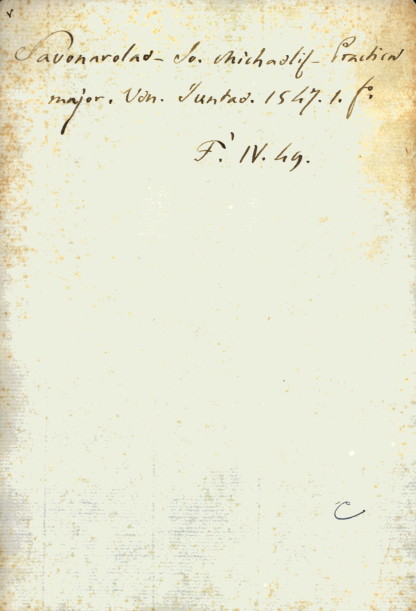 Savonarolae - Jo. Michaelis - Practica
major. Ven. Juntae. 1547. 1. fo.
F. IV. 49.
C